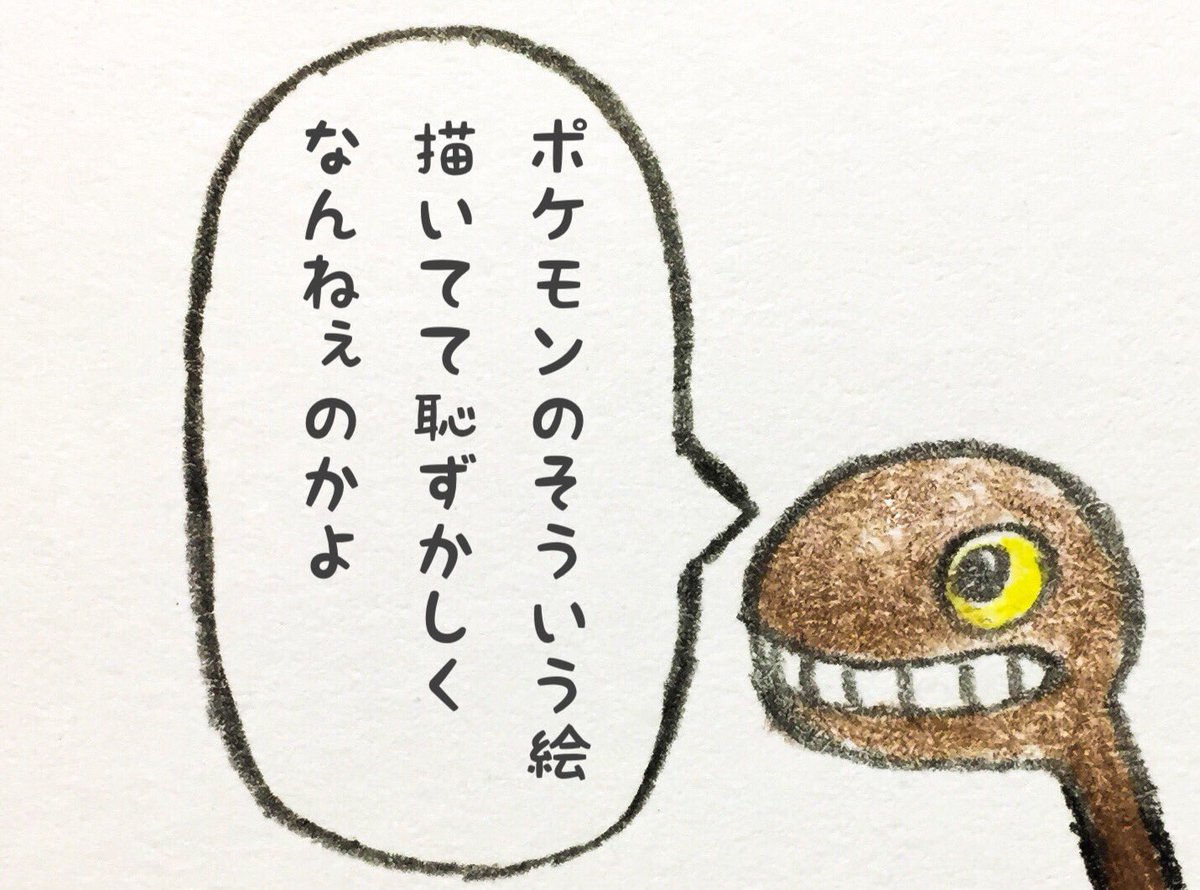 ポケモンのそういう絵
描いてて恥ずかしく
なんねぇのかよ